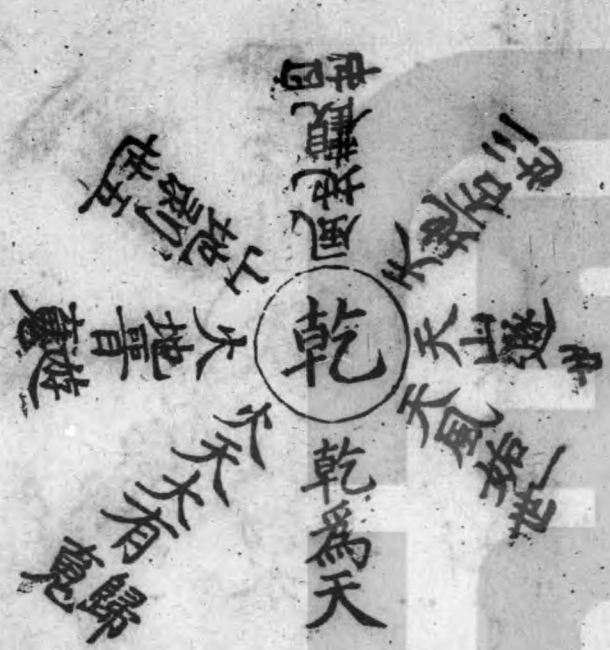 乾
乾為天
天風姤一世
天山遯二世
天地否三世
風地觀四世
山地剝五世
火地晉遊魂
火天大有歸魂